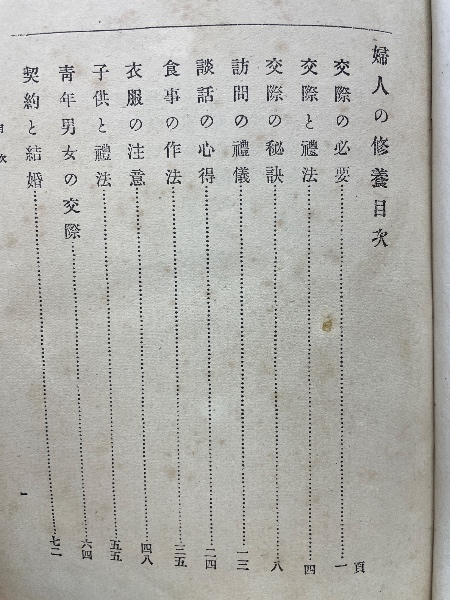 婦人の修養目次
頁
交際の必要……一
交際と禮法……四
交際の秘訣……八
訪問の禮儀……一三
談話の心得……二四
食事の作法……三五
衣服の注意……四八
子供と禮法……五五
靑年男女の交際……六四
契約と結婚……七二
目次
一